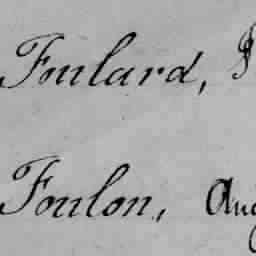 Foulard,
Foulon,